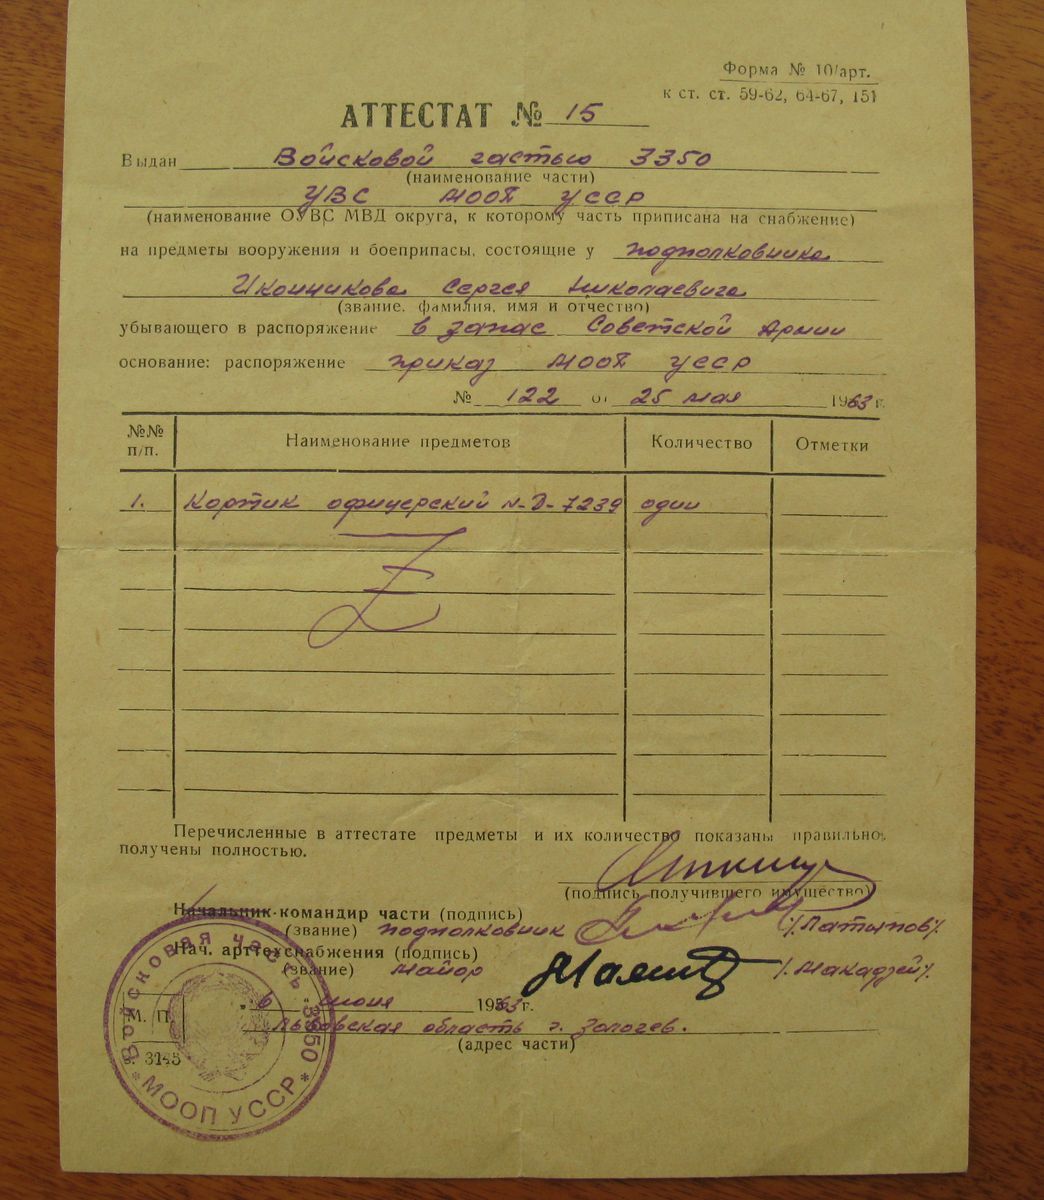 Форма № 10/арт.
к ст. ст. 59-62, 64-67, 151
АТТЕСТАТ № 15
Выдан Войсковой частью 3350
(наименование части)
УВС МООП УССР
(наименование ОУВС МВД округа, к которому часть приписана на снабжение)
на предметы вооружения и боеприпасы, состоящие у подполковника
Иконникова Сергея Николаевича
(звание, фамилия, имя и отчество)
убывающего в распоряжение в запас Советской Армии
основание: распоряжение приказ МООП УССР
№ 122 от 25 мая 1963 г.
№№ п/п. Наименование предметов Количество Отметки
1. Кортик офицерский N-D-7239 один
Перечисленные в аттестате предметы и их количество показаны правильно,
получены полностью.
(подпись получившего имущество)
Начальник-командир части (подпись)
(звание) подполковник /Латыпов/
Нач. арттехснабжения (подпись)
(звание) майор /Макадзей/
"6" июня 1963 г.
М. П.
Львовская область г. Золочев.
(адрес части)
з. 3145
Войсковая часть 3350
* МООП УССР *